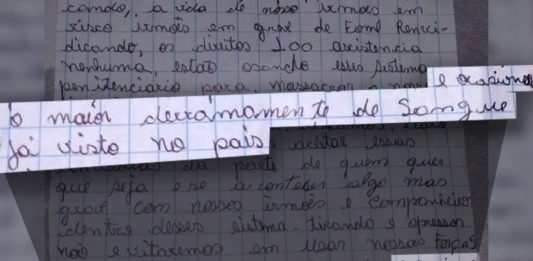 comdo, a vida de nosso irmãos em
risco irmãos em greve de Fome Renvi-
dicando, os direitos 100 asistencia
nenhuma, estão osando esses sistema
penitenciario para massacrar
e ocasionar
o maior derramamente de Sangue
já visto no pais
aceitar essas
da parte de quem quer
que seja e se a conteser algo mas
grave com nossos irmãos e companheiro
dentro desses sistema. tirando e opressor
não evitaremos em usar nossas FORÇAS